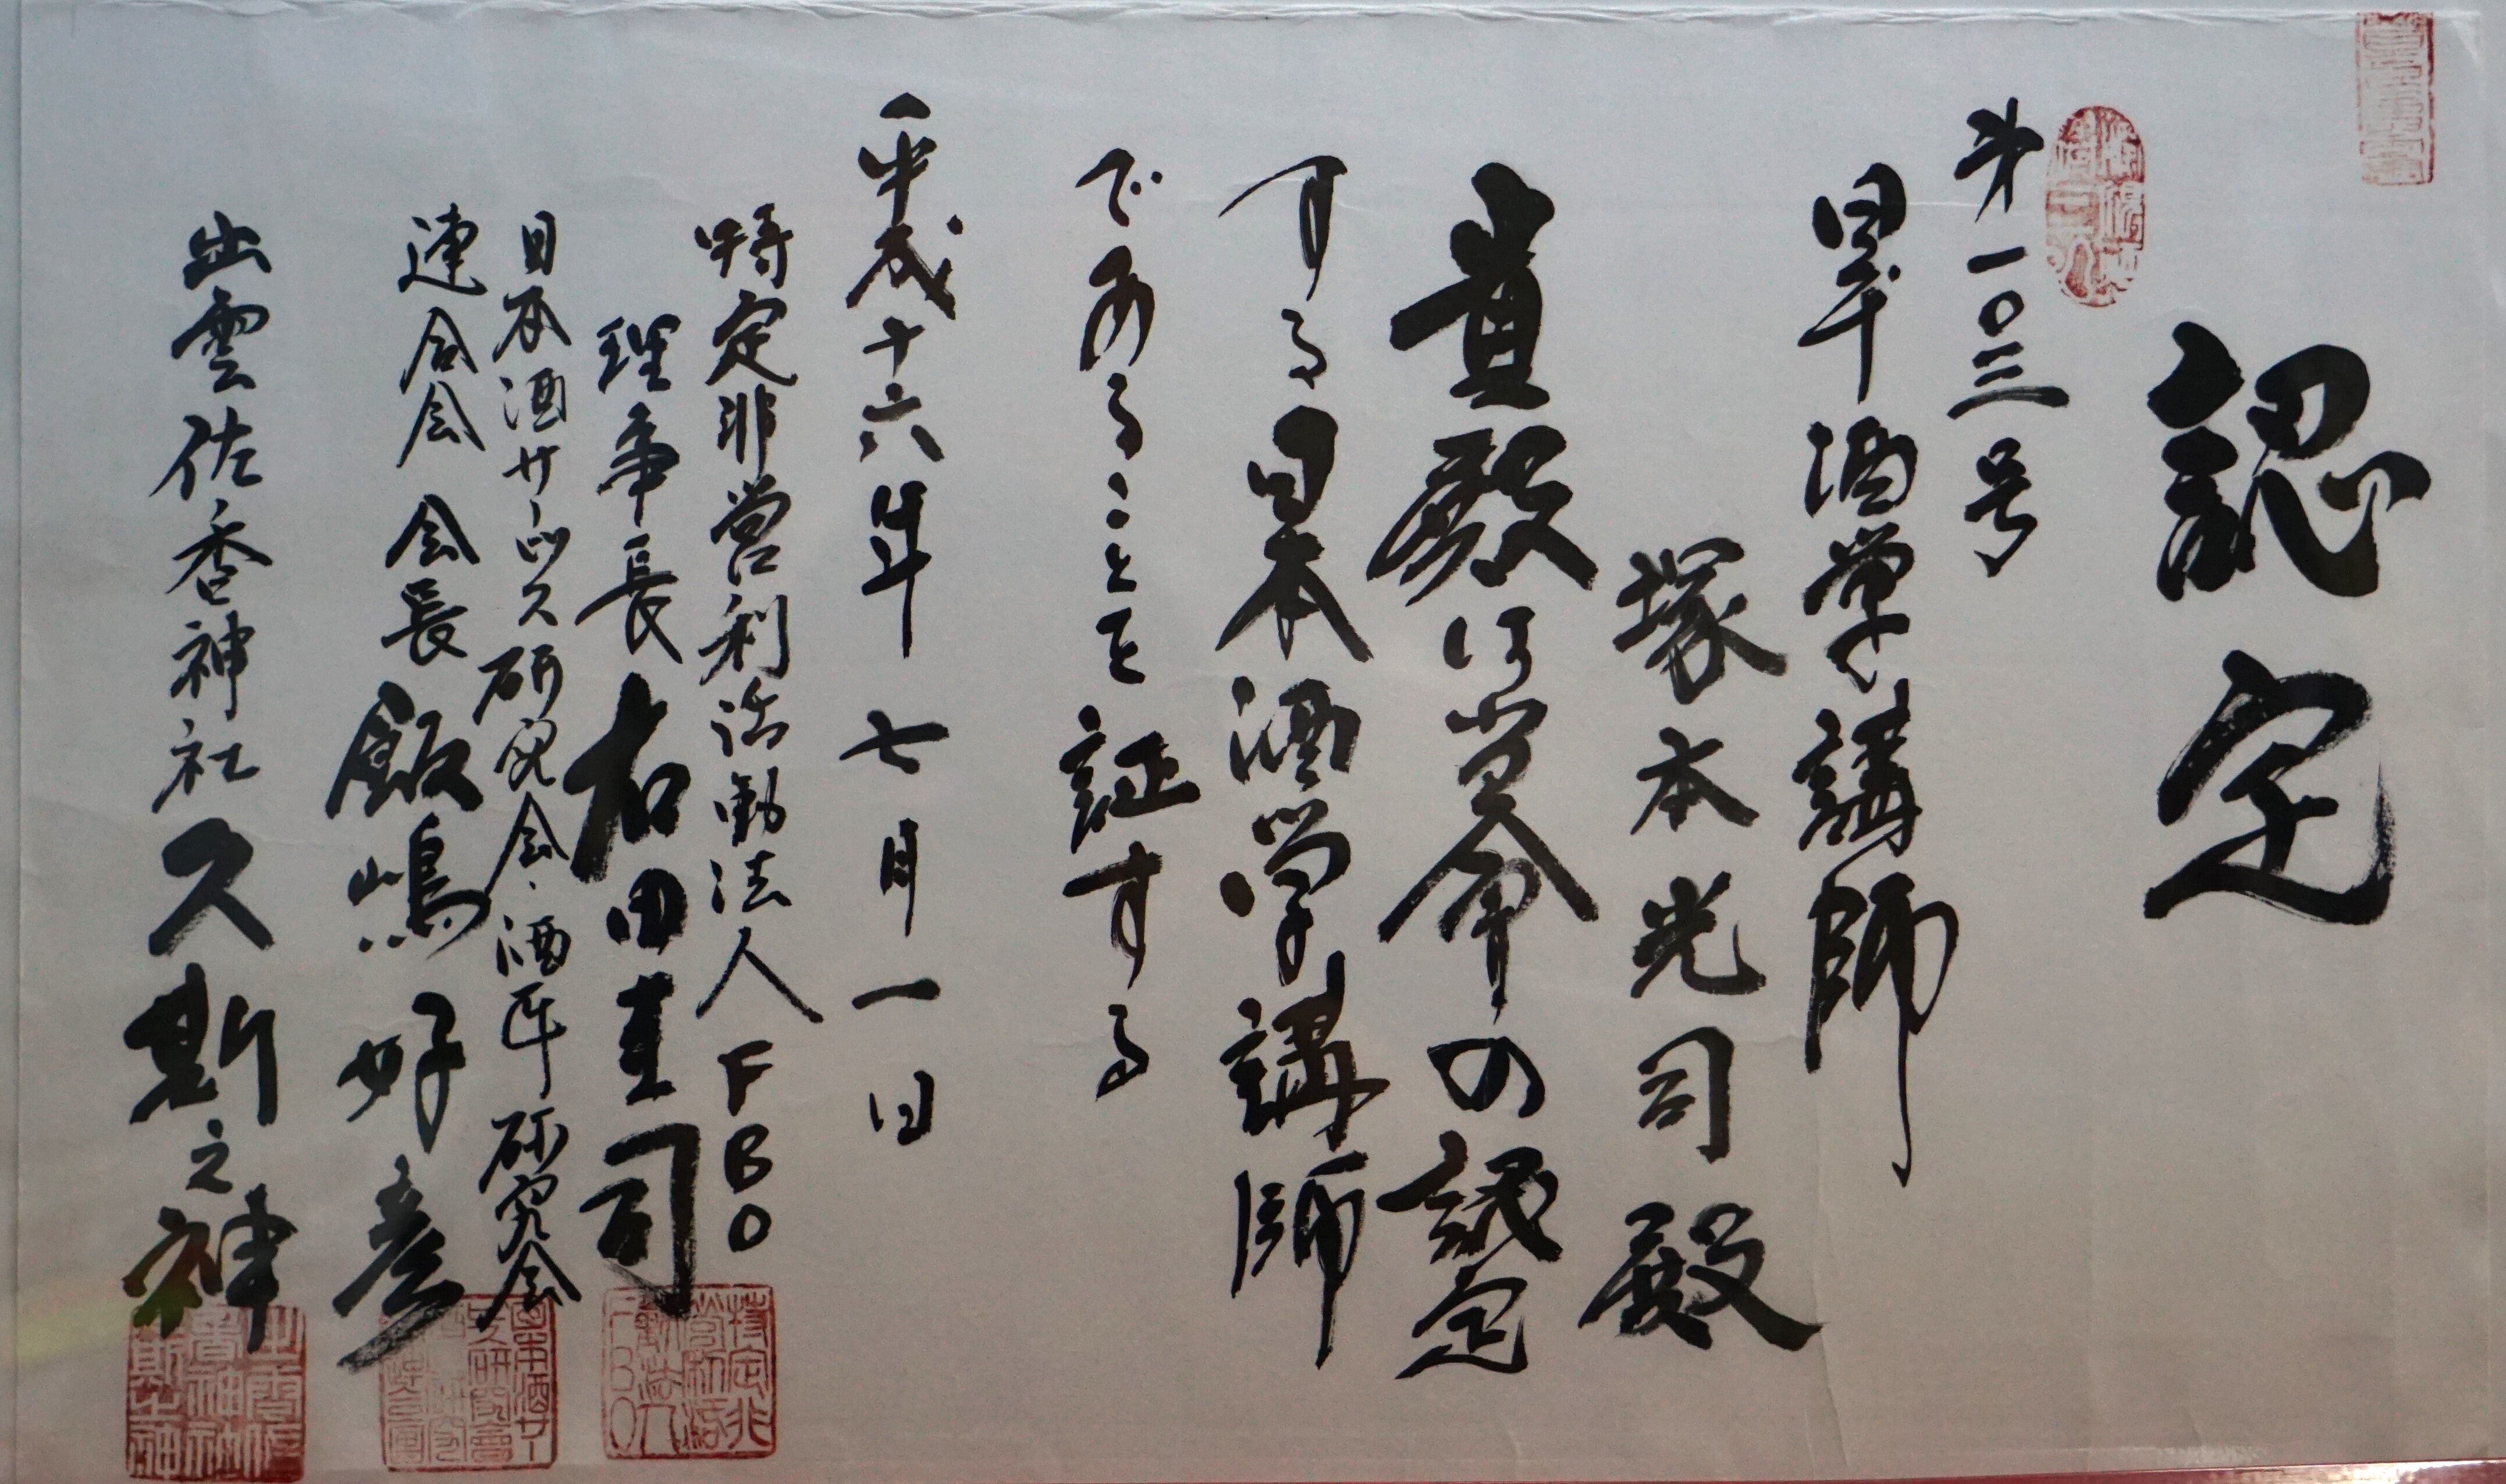 認定
第一〇三号
日本酒学講師
塚本光司殿
貴殿は当会の認定
する日本酒学講師
であることを証する
平成十六年七月一日
特定非営利活動法人FBO
理事長 右田圭司
日本酒サービス研究会・酒匠研究会
連合会 会長 飯嶋好彦
出雲佐香神社 久斯之神